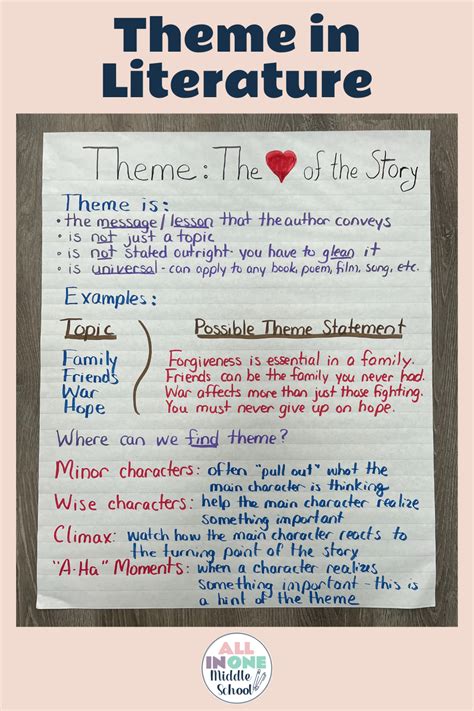 Theme in
Literature
Theme: The ❤ of the Story
Theme is:
• the message/lesson that the author conveys
• is not just a topic
• is not stated outright - you have to glean it
• is universal - can apply to any book, poem, film, song, etc.
Examples:
Topic
Possible Theme Statement
Family
Forgiveness is essential in a family.
Friends
Friends can be the family you never had.
War
War affects more than just those fighting.
Hope
You must never give up on hope.
Where can we find theme?
Minor characters: often "pull out" what the
main character is thinking
Wise characters: help the main character realize
something important
Climax: watch how the main character reacts to
the turning point of the story
"A-Ha" Moments: when a character realizes
something important - this is
a hint of the theme
ALL
IN ONE
Middle
School